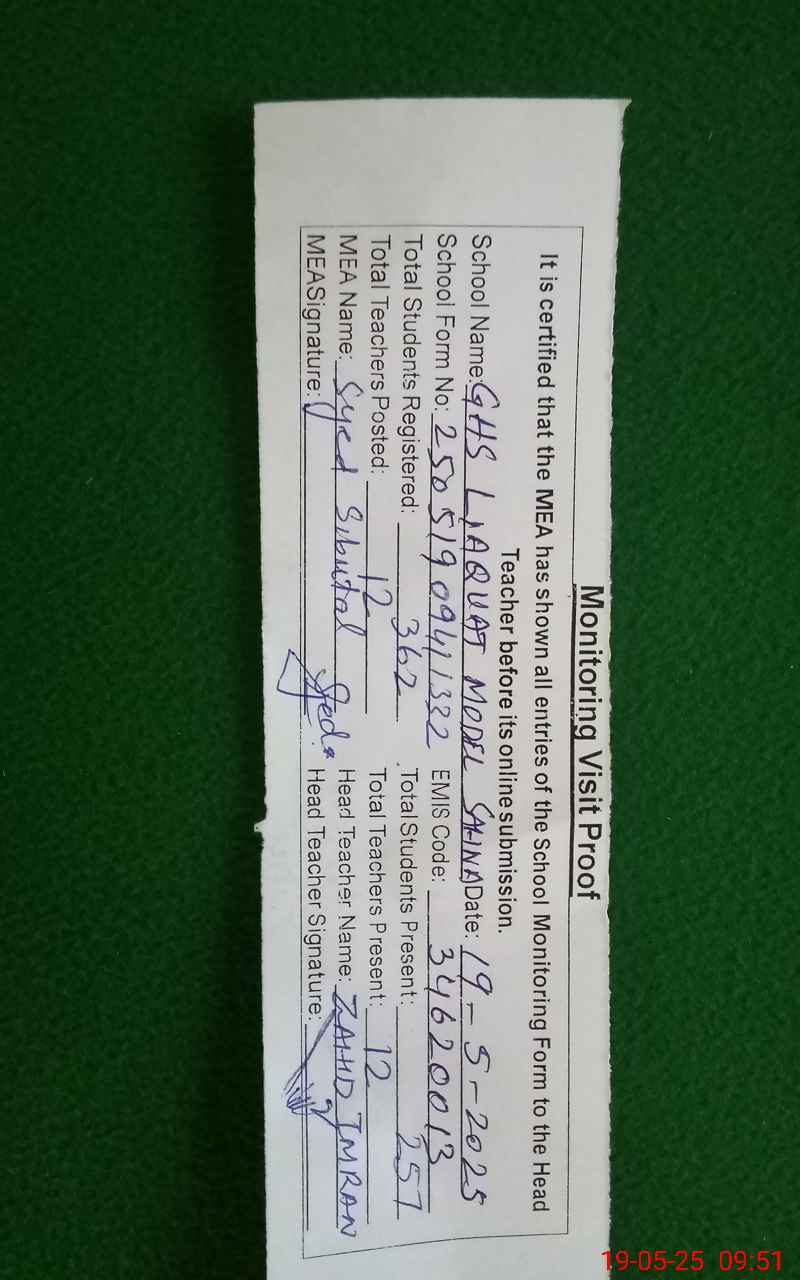 Monitoring Visit Proof
It is certified that the MEA has shown all entries of the School Monitoring Form to the Head
Teacher before its online submission.
School Name: GHS LIAQUAT MODEL SAHNA Date: 19-5-2025
School Form No: 2505190941332 EMIS Code: 34620013
Total Students Registered: 362 Total Students Present: 257
Total Teachers Posted: 12 Total Teachers Present: 12
MEA Name: Syed Sibutal Head Teacher Name: ZAHID IMRAN
MEA Signature: Head Teacher Signature:
19-05-25 09:51